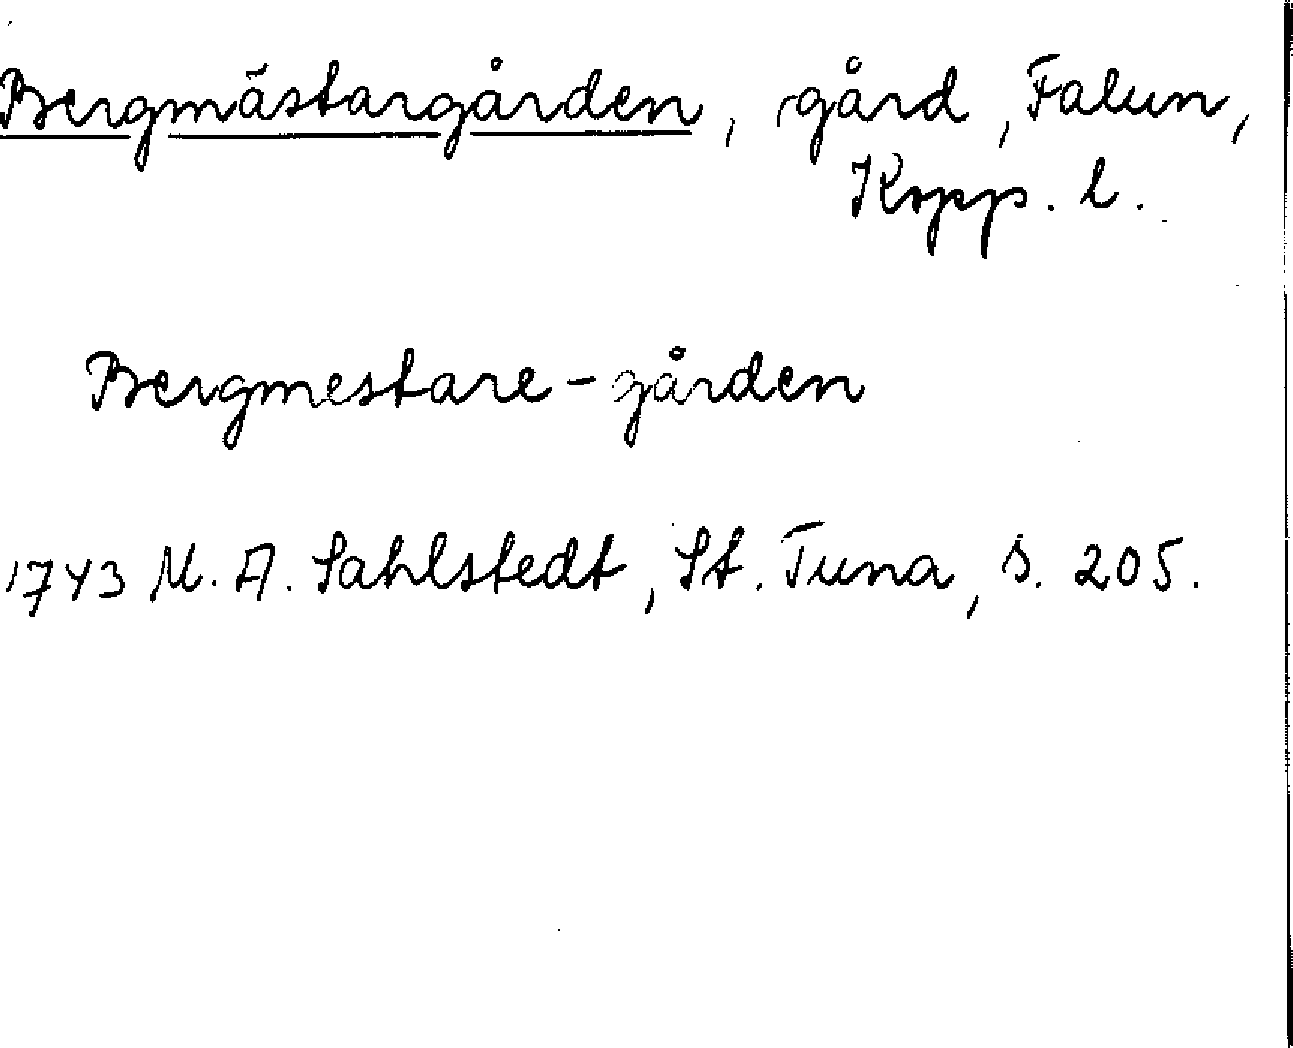 Bergmästargården, gård, Falun,
Kopp. l.
Bergmestare-gården
1743 M. A. Sahlstedt, St. Tuna, s. 205.